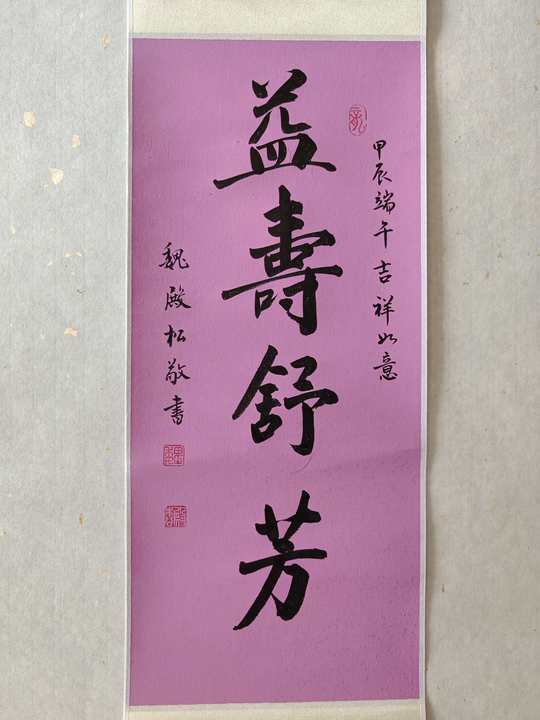 甲辰端午吉祥如意
益壽舒芳
魏殿松敬書